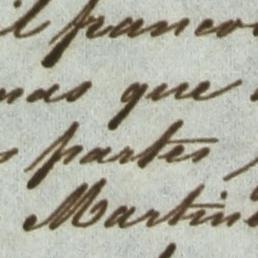 il franco
mas que
partes
Martin